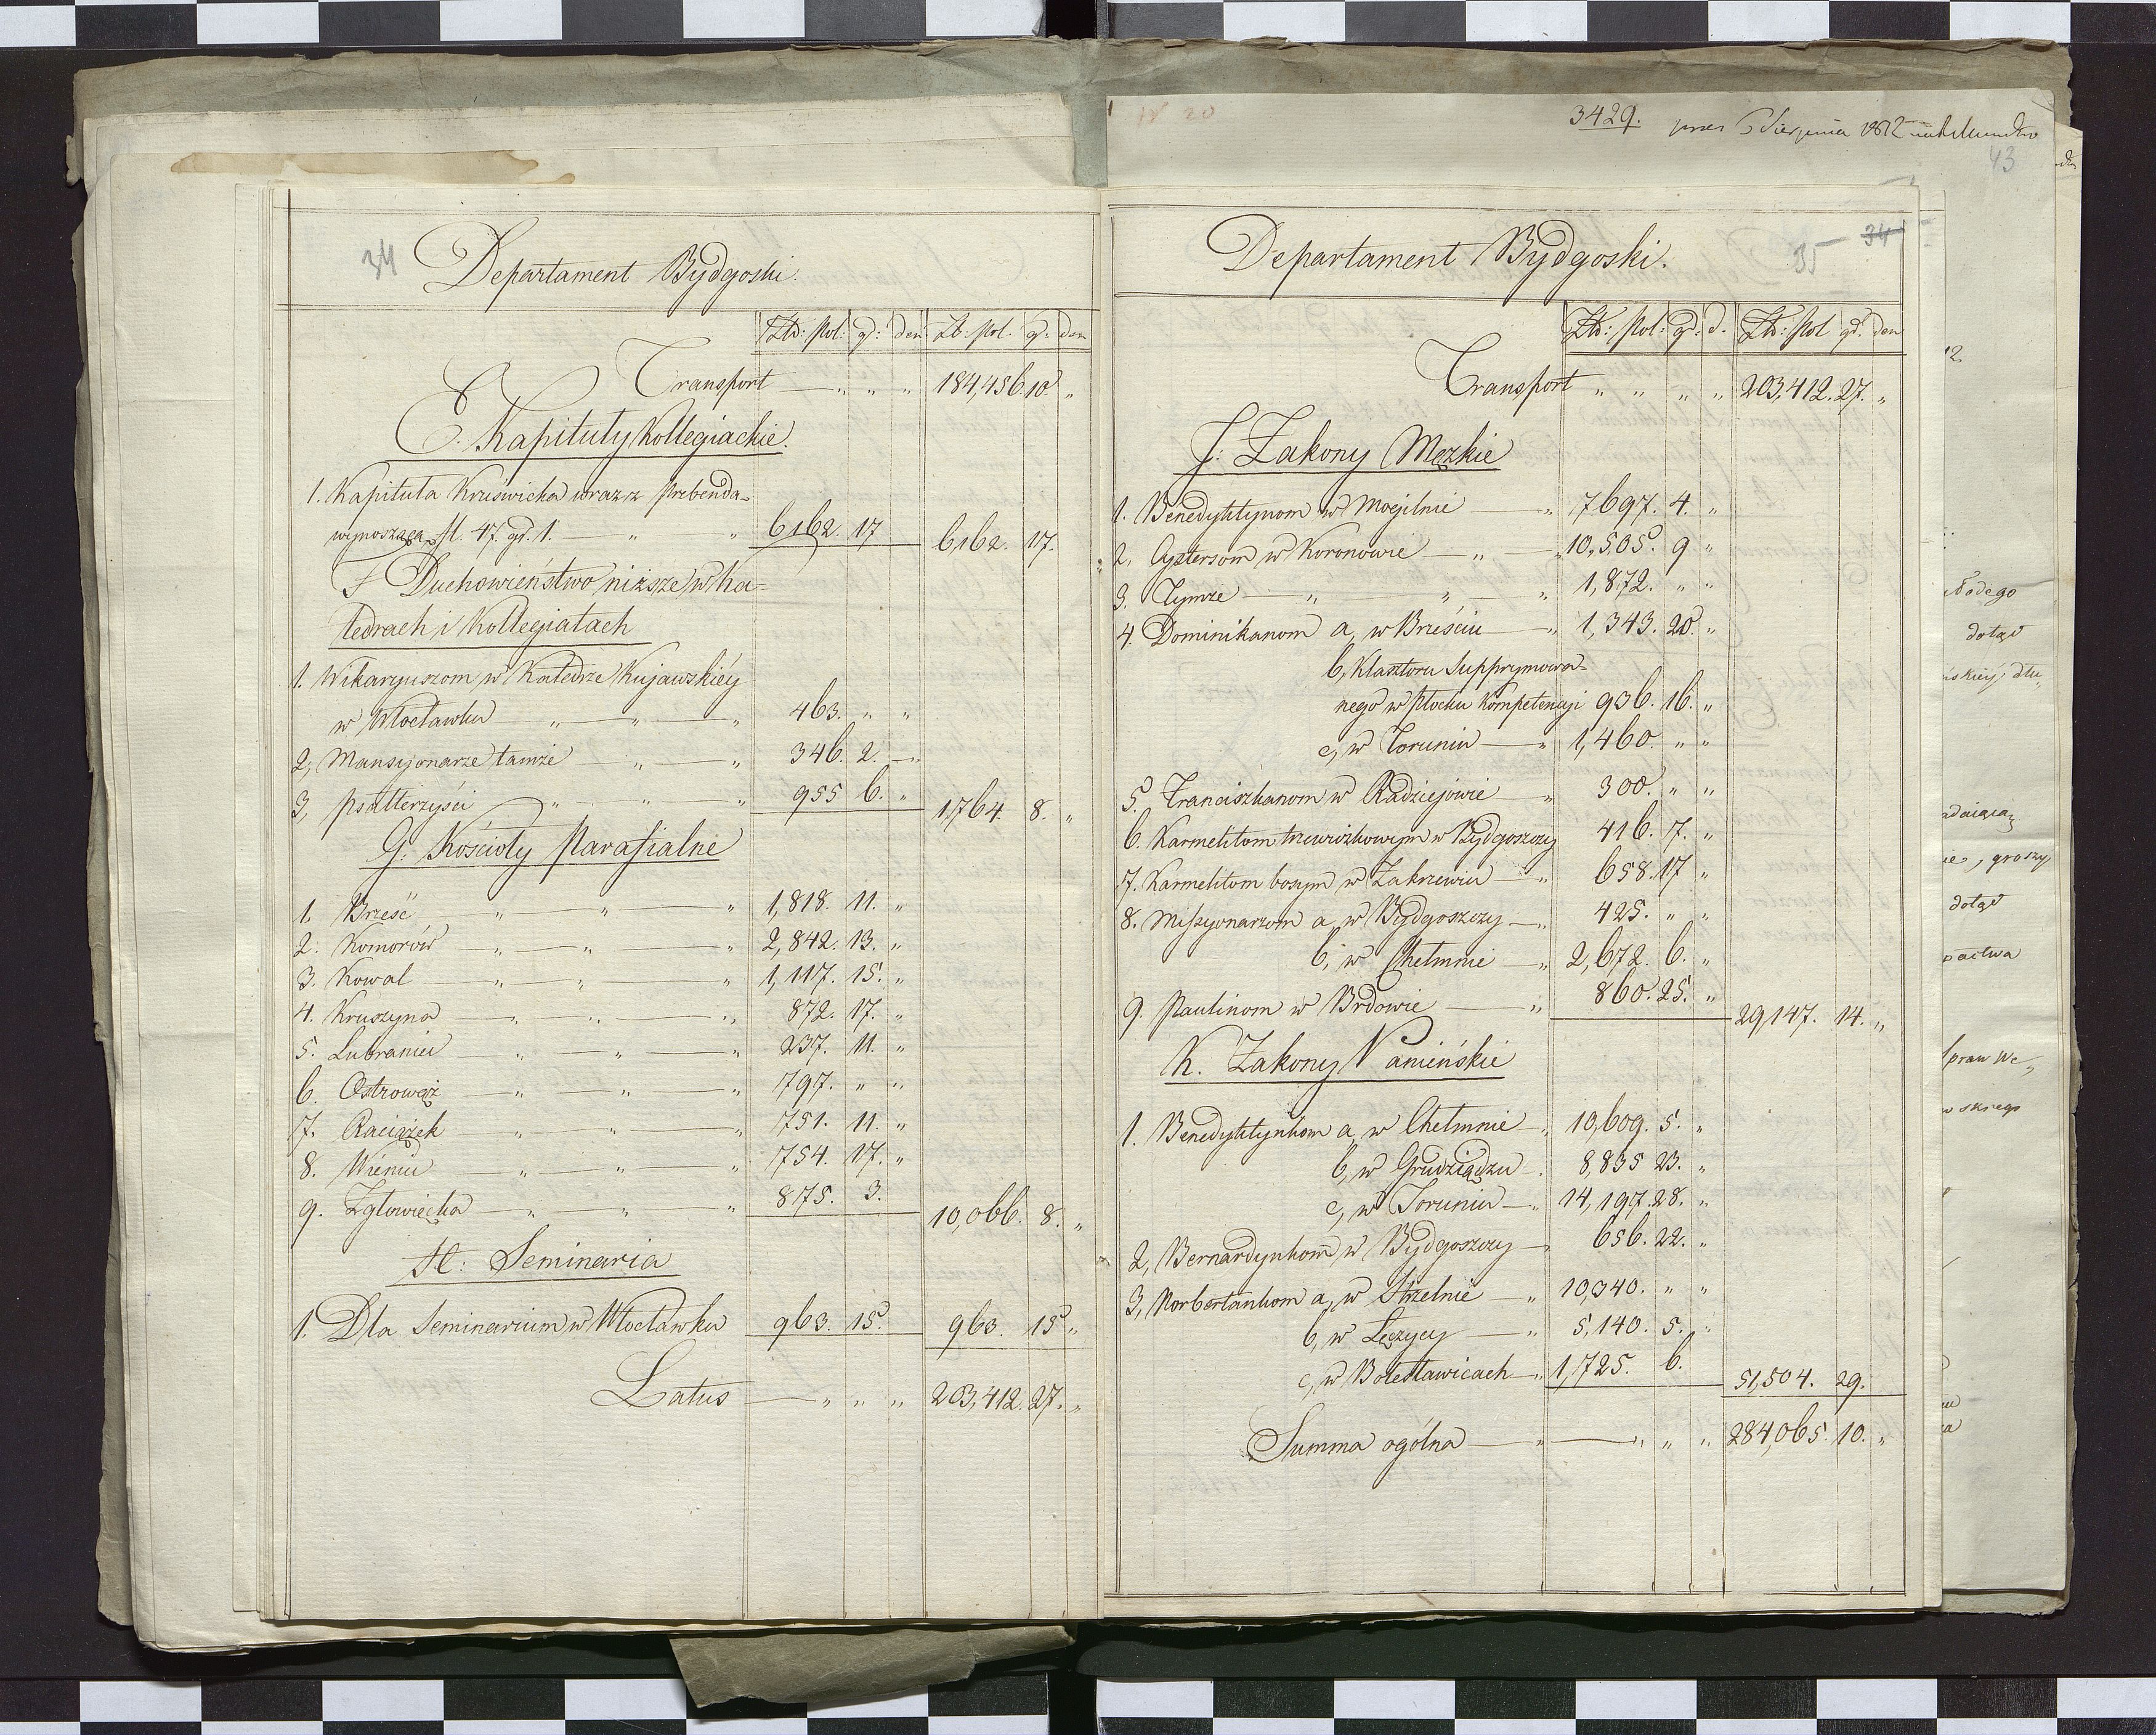 34
Departament Bydgoski.
Złp: Pol: gr: den Zł: Pol. gr: den
Transport — „ „ „ 184,456. 10. „
E. Kapituły Kollegiackie.
1. Kapituła Kruświcka wraz z prebenda-
wynoszącą fl. 47. gr. 1. — „ „ 6162. 17 6162. 17.
F Duchowieństwo niższe w Ka-
tedrach i Kollegiatach
1. Wikaryuszom w Katedrze Kujawskiéy
w Włocławku — „ — „ — „ 463. „ „
2, Mansyonarze tamże — „ — „ 346. 2. —
3, psałterzyści „ — „ — „ 955 6. „ 1,764. 8. „
G. Kościoły Parafialne
1. Brześć „ — „ — „ 1,818. 11. „
2. Komorów — „ — „ — „ 2,842. 13. „
3. Kowal — „ — „ — „ 1,117. 15. „
4. Kruszyna — „ — „ — „ 872. 17. „
5. Lubraniec — „ — „ — „ 237. 11. „
6. Ostrowąż — „ — „ — „ 797. „ „
7. Raciążek — „ — „ — „ 751. 11. „
8. Wieniec — „ — „ — „ 754. 17. „
9. Zgłowięcka — „ — „ — „ 875. 3. 10,066. 8. „
H: Seminaria
1. Dla Seminarium w Włocławku 963. 15. 963. 15 „
Latus — „ „ „ 203,412. 27. „
3429.
Sierpnia 1812
43
Departament Bydgoski.
35 34
Złp: Pol: gr: d. Złp: Pol gr. den
Transport „ „ „ „ 203,412. 27. „
J: Zakony Męzkie
1. Benedyktynom w Mogilnie — „ 7697. 4. „
2. Cystersom w Koronowie — „ — „ 10,505. 9 „
3. Tymże — „ „ — „ 1,872. „ „
4. Dominikanom a, w Brześciu — „ 1,343. 20. „
b, Klasztoru Supprymowa-
nego w Płocku Kompetencyi 936. 16. „
c, w Toruniu — „ 1,460. „ „
5. Franciszkanom w Radziejowie — „ 300. „ „
6. Karmelitom trzewiczkowym w Bydgoszczy 416. 7. „
7. Karmelitom bosym w Zakrzewiu — „ 658. 17 „
8. Missyonarzom a, w Bydgoszczy — „ 425. „ „
b, w Chełmnie — „ 2,672. 6. „
9. Paulinom w Brdowie — „ 860. 25. „ 29,147. 14. „
K. Zakony Panieńskie
1. Benedyktynkom a, w Chełmnie „ 10,609. 5. „
b, w Grudziądzu „ 8,835 23. „
c, w Toruniu — „ 14,197. 28. „
2, Bernardynkom w Bydgoszczy — „ 656. 22. „
3, Norbertankom a, w Strzelnie — „ 10,340. „ „
b, w Łęczycy — „ 5,140. 5. „
c, w Bolesławicach — „ 1,725. 6. 51,504. 29.
Summa ogólna — „ — „ „ „ 284,065. 10. „
dotąd
groszy
dotąd